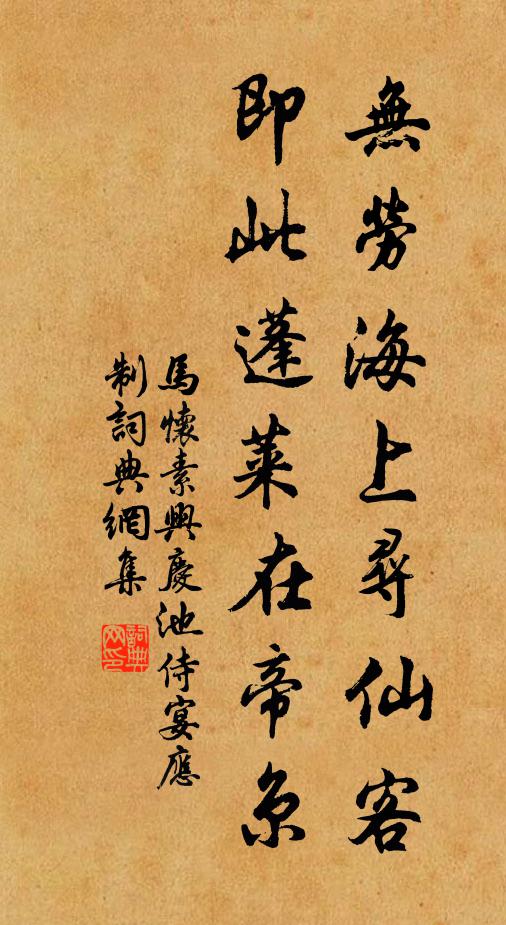 無勞海上尋仙客
即此蓬萊在帝京
馬懷素興慶池侍宴應
制詞典網集
詞典
网印